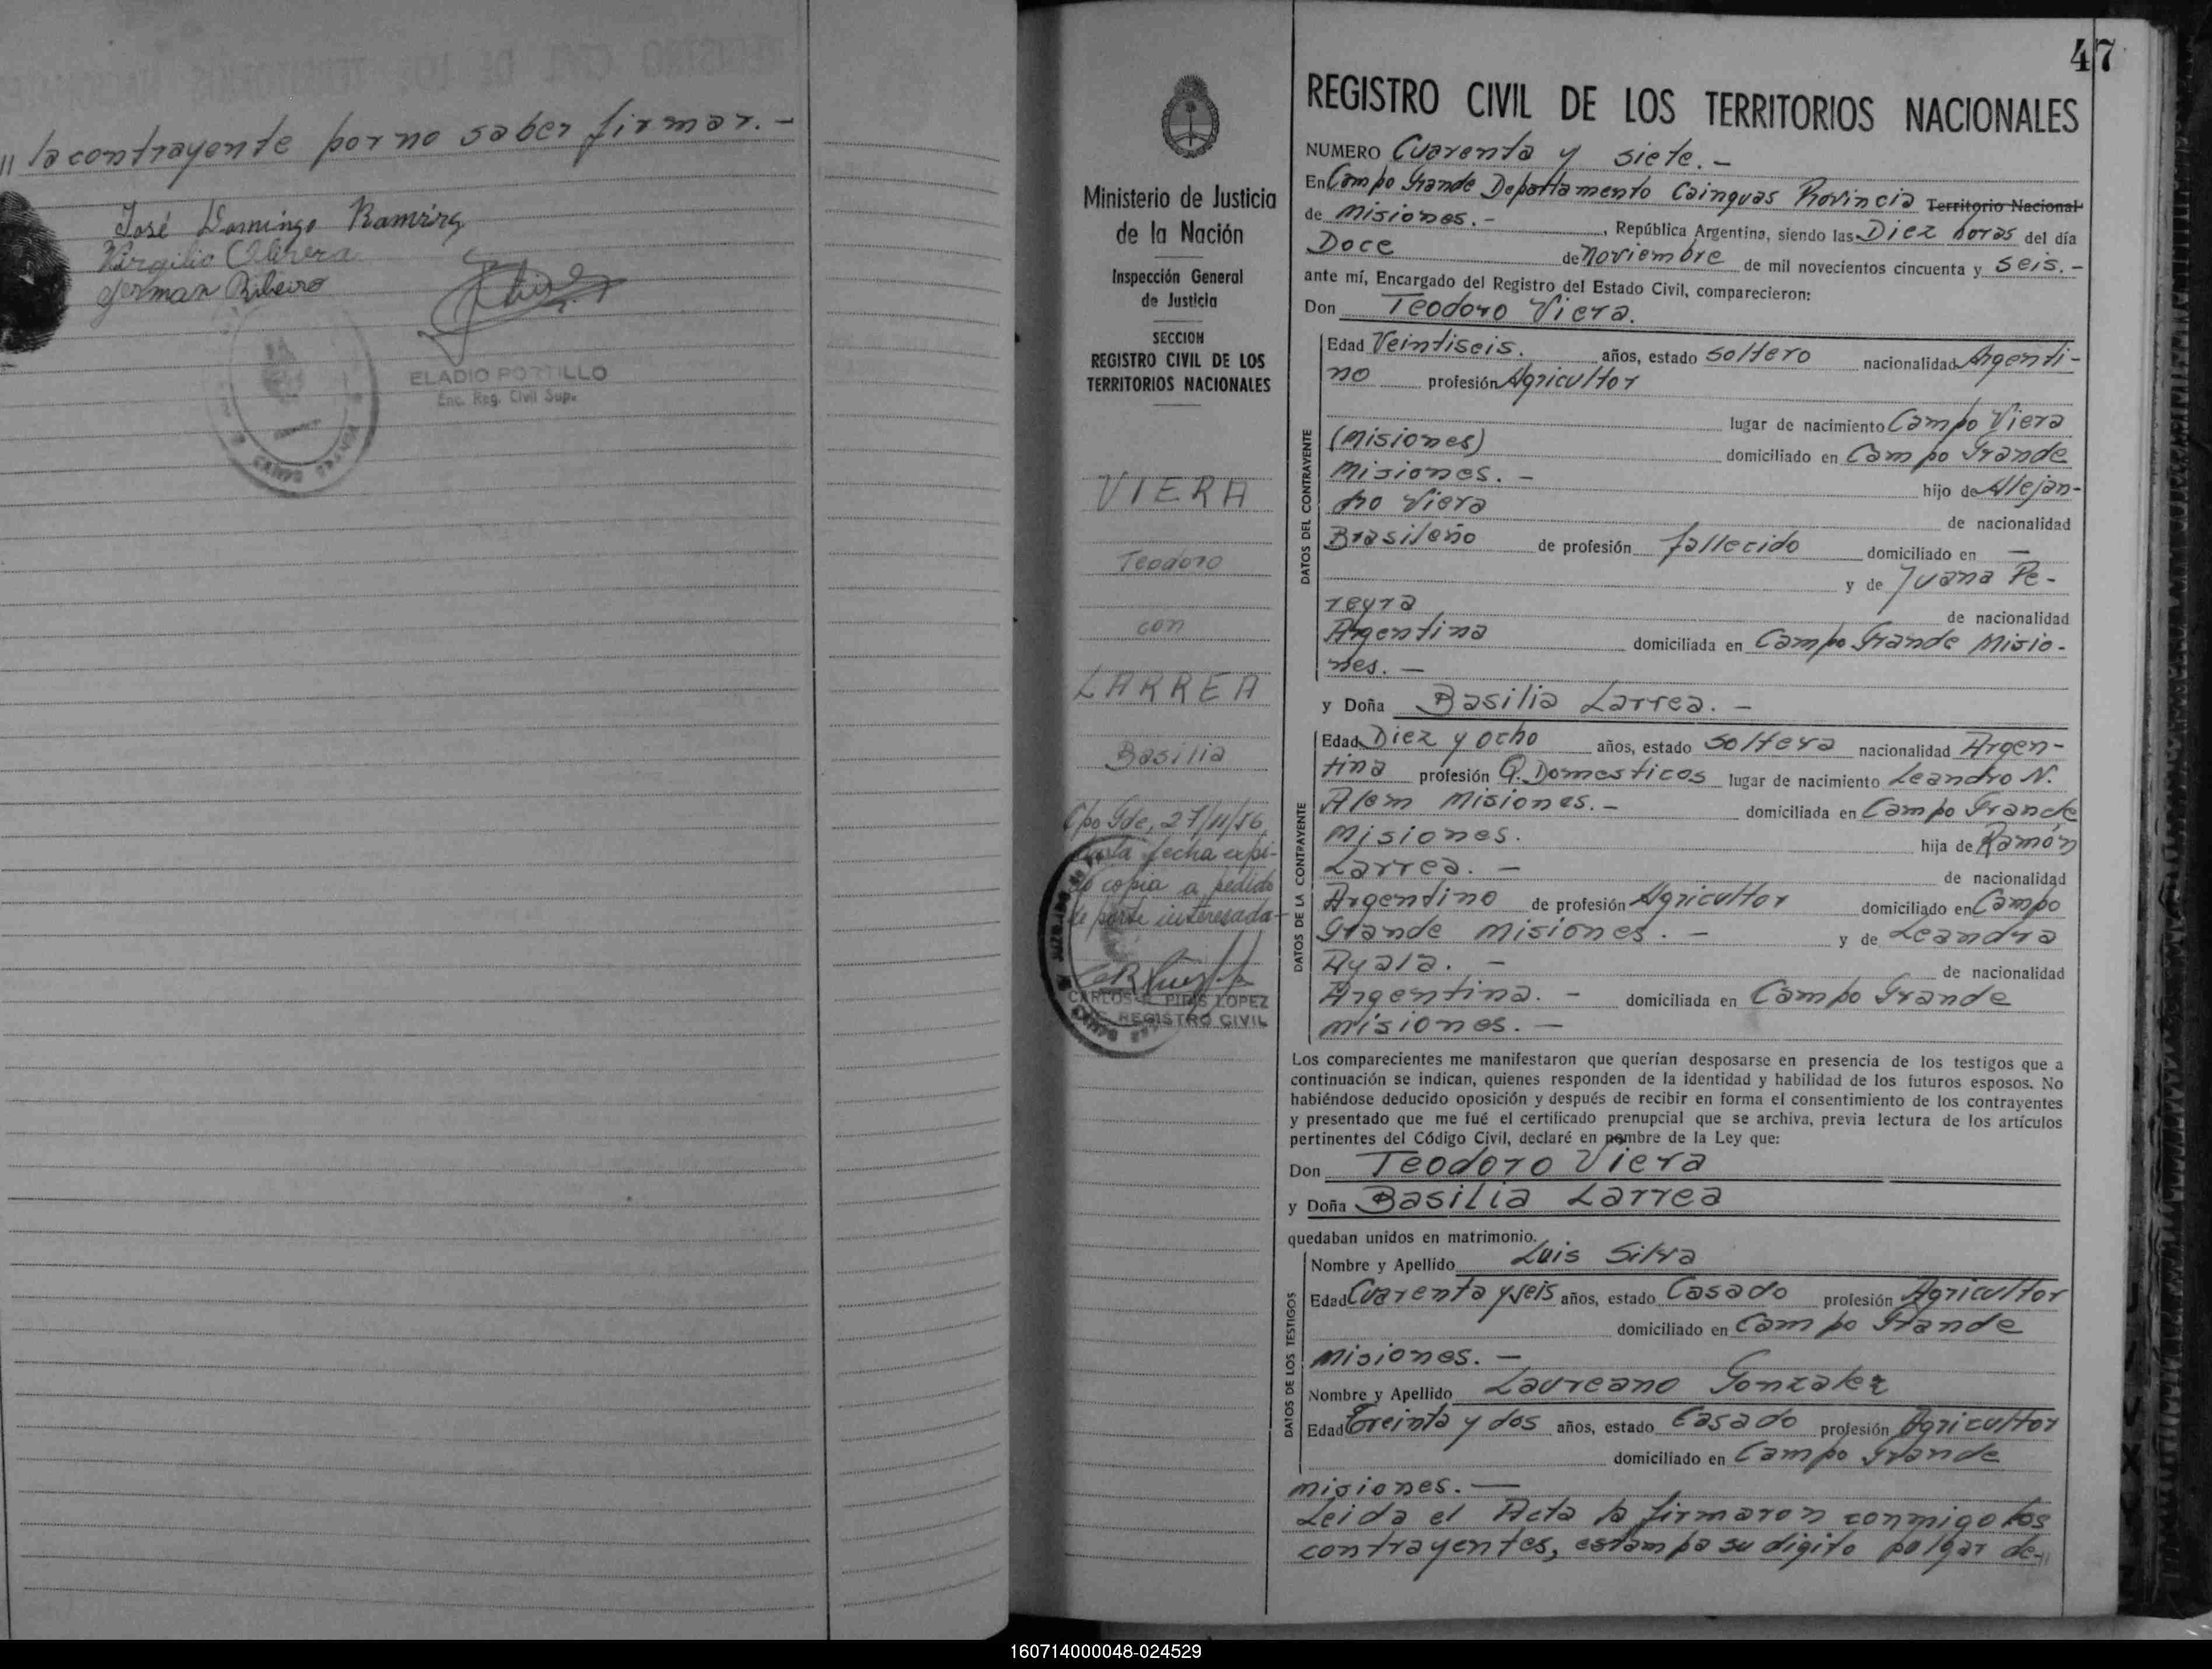 // la contrayente por no saber firmar.-
José Domingo Ramírez
Virgilio Olivera
German Ribeiro
ELADIO PORTILLO
Enc. Reg. Civil Sup.
47
Ministerio de Justicia
de la Nación
Inspección General
de Justicia
SECCION
REGISTRO CIVIL DE LOS
TERRITORIOS NACIONALES
VIERA
Teodoro
con
LARREA
Basilia
Cpo Gde, 27/11/56
fecha expi-
do copia a pedido
de parte interesada-
CARLOS R. PIRIS LOPEZ
REGISTRO CIVIL
REGISTRO CIVIL DE LOS TERRITORIOS NACIONALES
NUMERO Cuarenta y siete.-
En Campo Grande Departamento Cainguas Provincia Territorio Nacional
de Misiones.- , República Argentina, siendo las Diez horas del día
Doce de Noviembre de mil novecientos cincuenta y seis.-
ante mí, Encargado del Registro del Estado Civil, comparecieron:
Don Teodoro Viera.
DATOS DEL CONTRAYENTE
Edad Veintiseis. años, estado soltero nacionalidad Argenti-
no profesión Agricultor
lugar de nacimiento Campo Viera
(Misiones) domiciliado en Campo Grande
Misiones.- hijo de Alejan-
dro Viera de nacionalidad
Brasileño de profesión fallecido domiciliado en —
y de Juana Pe-
reyra de nacionalidad
Argentina domiciliada en Campo Grande Misio-
nes.-
y Doña Basilia Larrea.-
DATOS DE LA CONTRAYENTE
Edad Diez y ocho años, estado soltera nacionalidad Argen-
tina profesión Q. Domesticos lugar de nacimiento Leandro N.
Alem Misiones.- domiciliada en Campo Grande
Misiones. hija de Ramón
Larrea.- de nacionalidad
Argentino de profesión Agricultor domiciliado en Campo
Grande Misiones.- y de Leandra
Ayala.- de nacionalidad
Argentina.- domiciliada en Campo Grande
Misiones.-
Los comparecientes me manifestaron que querían desposarse en presencia de los testigos que a
continuación se indican, quienes responden de la identidad y habilidad de los futuros esposos. No
habiéndose deducido oposición y después de recibir en forma el consentimiento de los contrayentes
y presentado que me fué el certificado prenupcial que se archiva, previa lectura de los artículos
pertinentes del Código Civil, declaré en nombre de la Ley que:
Don Teodoro Viera
y Doña Basilia Larrea
quedaban unidos en matrimonio.
DATOS DE LOS TESTIGOS
Nombre y Apellido Luis Silva
Edad Cuarenta y seis años, estado Casado profesión Agricultor
domiciliado en Campo Grande
Misiones.-
Nombre y Apellido Laureano Gonzalez
Edad Treinta y dos años, estado Casado profesión Agricultor
domiciliado en Campo Grande
Misiones.-
Leida el Acta la firmaron conmigo los
contrayentes, estampa su digito pulgar de-//
160714000048-024529